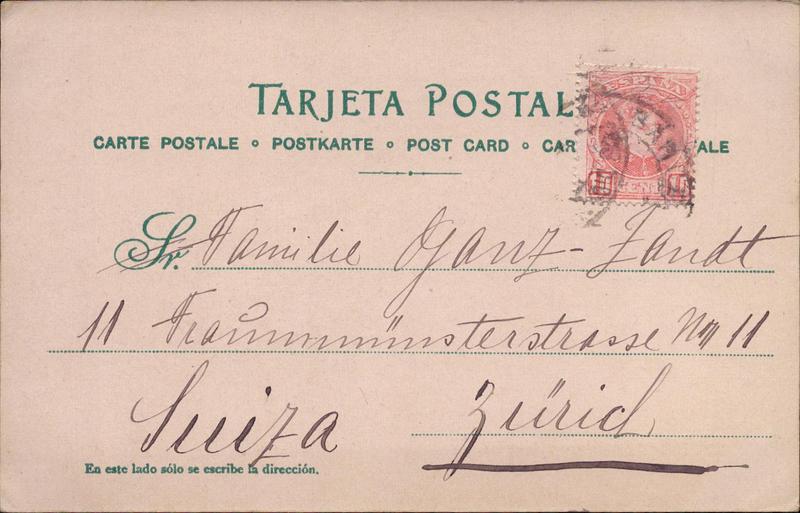 TARJETA POSTAL
CARTE POSTALE • POSTKARTE • POST CARD • CAR TALE
ESPAÑA
10 CENT 10
Sr. Familie Ganz-Zandt
11 Fraumünsterstrasse No 11
Suiza Zürich
En este lado sólo se escribe la dirección.